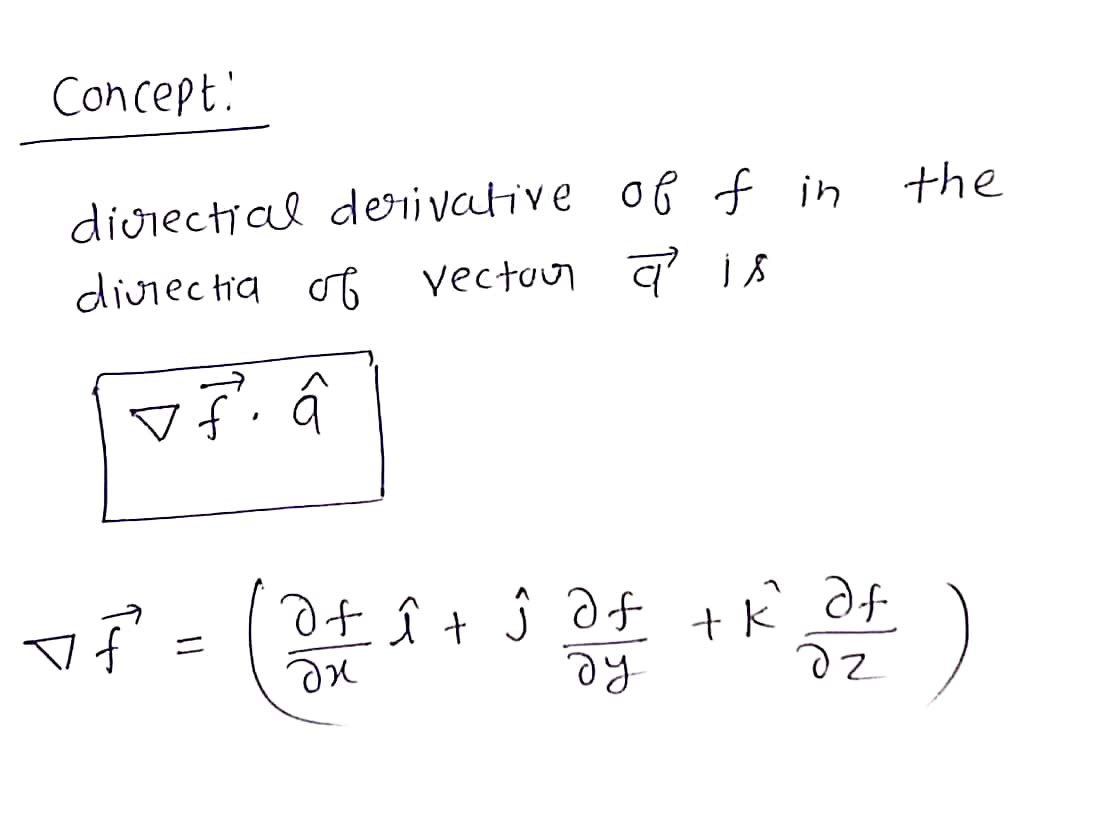 Concept:
directial derivative of f in the
directia of vector a⃗ is
∇f⃗ . â
∇f⃗ = (∂f/∂x î + ĵ ∂f/∂y + k̂ ∂f/∂z)